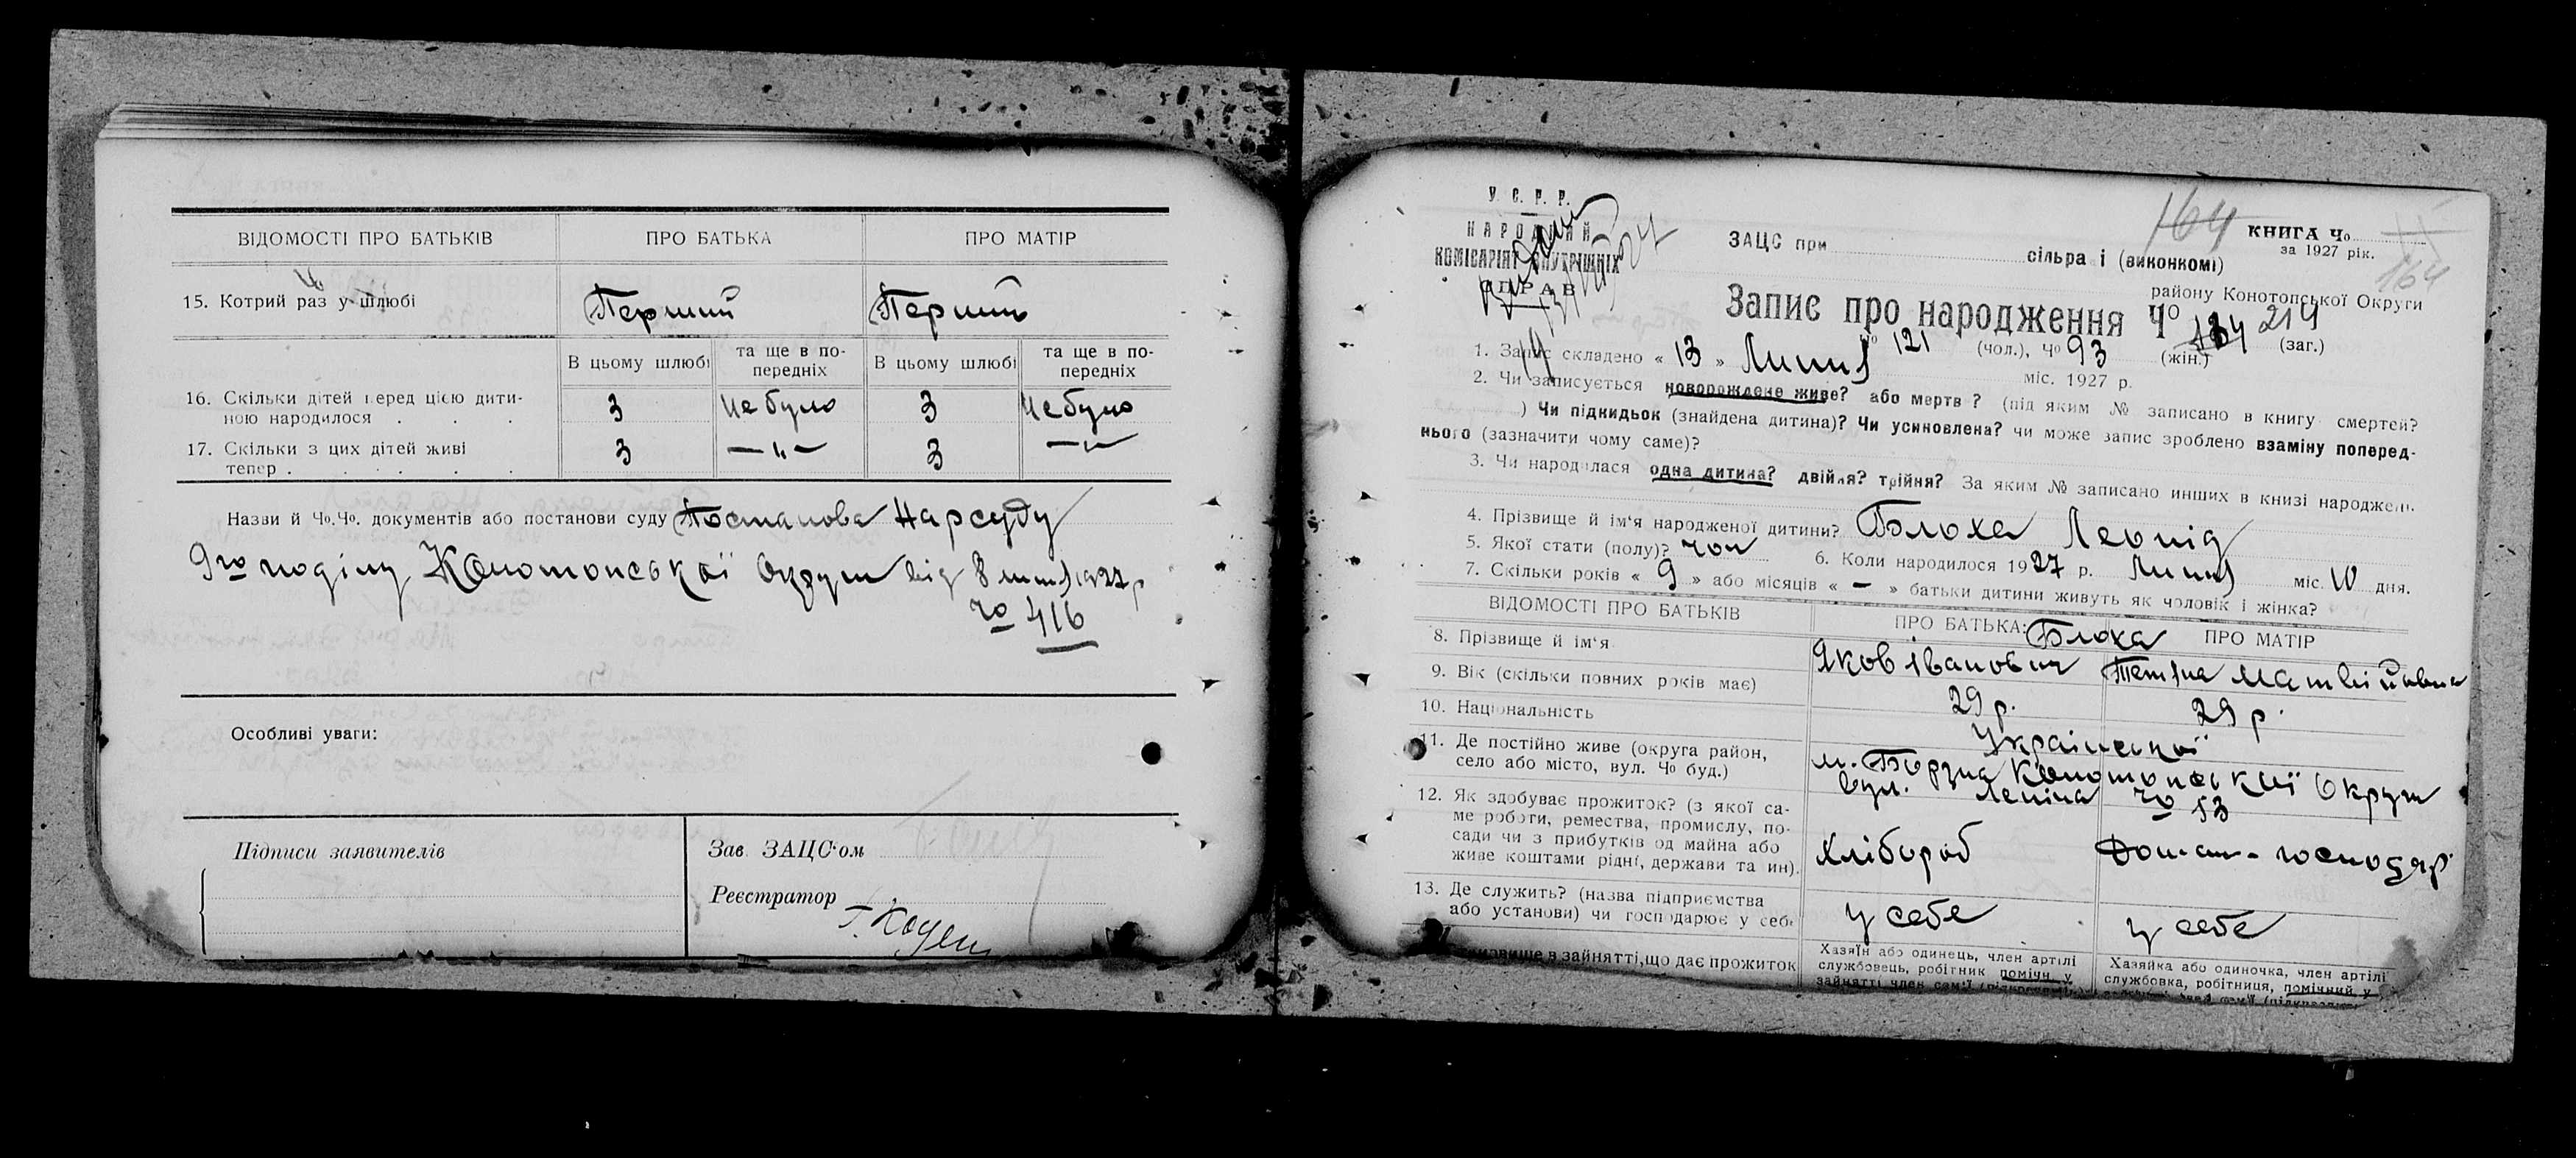 ВІДОМОСТІ ПРО БАТЬКІВ ПРО БАТЬКА ПРО МАТІР
15. Котрий раз у шлюбі Перший Перший
В цьому шлюбі та ще в по- В цьому шлюбі та ще в по-
передніх передніх
16. Скільки дітей перед цією дити-
ною народилося . . . 3 не було 3 не було
17. Скільки з цих дітей живі
тепер . . . . . 3 — „ — 3 — „
Назви й Чо.Чо. документів або постанови суду Постанова Нарсуду
9го поділу Конотопської Округи від 8 липня 1927 р
чо 416
Особливі уваги:
Підписи заявителів
Зав. ЗАЦС'ом
Реєстратор Г.
У. С. Р. Р.
НАРОДНІЙ
КОМІСАРІЯТ ВНУТРІШНІХ
СПРАВ
164
КНИГА Чо
за 1927 рік.
164
ЗАЦС при сільра і (виконкомі)
району Конотопської Округи
Запис про народження Чо 214 (заг.)
чо 121 (чол.), Чо 93 (жін.)
1. Запис складено « 13 » Липня міс. 1927 р.
2. Чи записується новорождене живе? або мертв ? (під яким № записано в книгу смертей?
) Чи підкидьок (знайдена дитина)? Чи усиновлена? чи може запис зроблено взаміну поперед-
нього (зазначити чому саме)?
3. Чи народилася одна дитина? двійня? трійня? За яким № записано инших в книзі народжень
4. Прізвище й ім'я народженої дитини? Блоха Леонід
5. Якої стати (полу)? чол 6. Коли народилося 1927 р. Липня міс. 10 дня.
7. Скільки років « 9 » або місяців « — » батьки дитини живуть як чоловік і жінка?
ВІДОМОСТІ ПРО БАТЬКІВ ПРО БАТЬКА: ПРО МАТІР
Блоха
8. Прізвище й ім'я Яков Іванович Тетяна Матвійовна
9. Вік (скільки повних років має) 29 р. 29 р.
10. Національність Української
11. Де постійно живе (округа район,
село або місто, вул. Чо буд.)
м. Борзна Конотопської Округи
вул. Леніна чо 53
12. Як здобуває прожиток? (з якої са-
ме роботи, ремества, промислу, по-
сади чи з прибутків од майна або
живе коштами рідні, держави та ин).
Хлібороб Домаш-господар
13. Де служить? (назва підприємства
або установи) чи господарює у себе
у себе у себе
в зайнятті, що дає прожиток
Хазяїн або одинець, член артілі
службовець, робітник помічн. у
зайнятті член сем'ї
Хазяйка або одиночка, член артілі
службовка, робітниця, помічний у